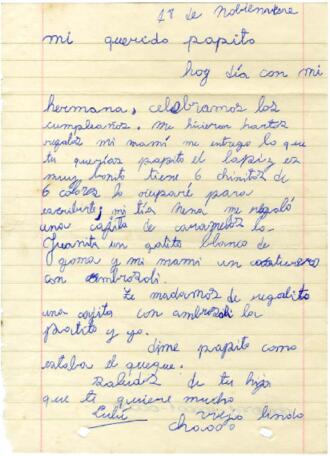 18 de Nobiembre
mi querido papito
hoy día con mi
hermana, celebramos los
cumpleaños. Me hicieron hartos
regalos mi mamí me entrego lo que
tu querías papito el lápiz es
muy bonito tiene 6 chinitos de
6 colores lo ocuparé para
escribirte; mi tía nena me regaló
una cajita de caramelos la
Juanita un gatito blanco de
goma y mi mami un
con ambrosoli.
Te madamos de regalito
una cajita con ambrosoli la
patito y yo.
dime papito como
estaba el queque.
Saludos de tu hija
que te quiere mucho
Lulú viejo lindo
chaooo